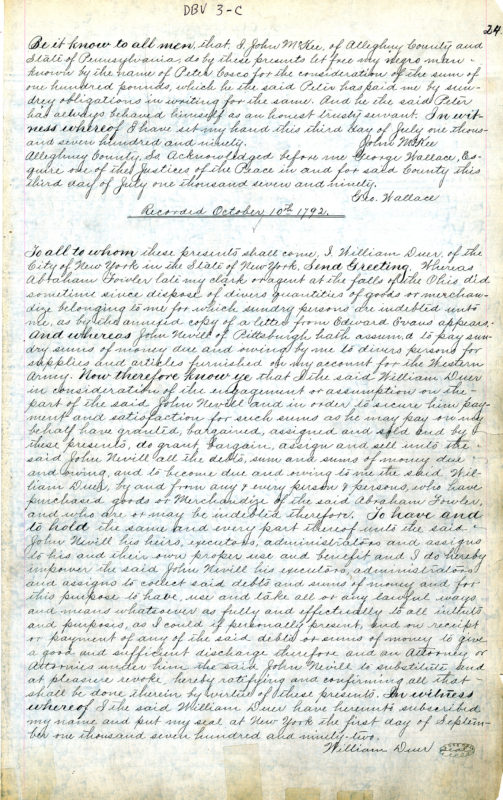 DBV 3-C
24
Be it know to all men, that, I John McKee, of Alleghny County and
State of Pennsylvania, do by these presents let free my negro man
known by the name of Peter Cosco for the consideration of the sum of
one hundred pounds, which he the said Peter has paid me by sun-
drey obligations in writing for the same. And he the said Peter
has always behaved himself as an honest trusty servant. In wit-
ness whereof I have set my hand this third day of July one thous-
and seven hundred and ninety. John McKee
Alleghany County, Ss Acknowledged before me George Wallace, Es-
quire one of the Justices of the Peace in and for said County this
third day of July one thousand seven and ninety.
Geo. Wallace
Recorded October 10th 1792.
To all to whom these presents shall come, I, William Duer, of the
City of New York in the State of New York, Send Greeting. Whereas
Abraham Fowler late my clark or agent at the falls of the Ohio did
sometime since dispose of divers quantities of goods or merchan-
dize belonging to me for which sundry persons are indebted unto
me, as by the annexed copy of a letter from Edward Evans appears.
And whereas John Nevill of Pittsburgh hath assumed to pay sun-
dry sums of money due and owing by me to divers persons for
supplies and articles furnished on my account for the Western
Army. Now therefore know ye that I the said William Duer
in consideration of the engagement or assumption on the
part of the said John Nevill and in order to secure him pay-
ment and satisfaction for such sums as he may pay on my
behalf have granted, bargained, assigned and sold and by
these presents, do grant, bargain, assign and sell unto the
said John Nevill all the debts, sum and sums of money due
and owing, and to become due and owing to me the said Wil-
liam Duer, by and from any & every person & persons, who have
purchased goods or Merchandize of the said Abraham Fowler,
and who are or may be indebted therefore. To have and
to hold the same and every part thereof unto the said
John Nevill his heirs, executors, administrators and assigns
to his and their own proper use and benefit and I do hereby
impower the said John Nevill his executors, administrators
and assigns to collect said debts and sums of money and for
this purpose to have, use and take all or any lawful ways
and means whatsoever as fully and effectually to all intents
and purposes, as I could if personally present, and on receipt
or payment of any of the said debts or sums of money to give
a good and sufficient discharge therefore and an Attorney or
Attornies under him the said John Nevill to substitute and
at pleasure revoke, hereby ratifying and confirming all that
shall be done therein by virtue of these presents. In witness
whereof I the said William Duer have hereunto subscribed
my name and put my seal at New York the first day of Septem-
ber one thousand seven hundred and ninety-two.
William Duer seal